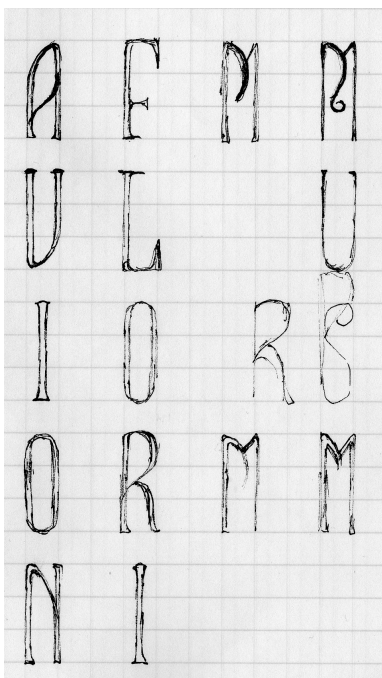 A F M M
V L U
I O R B
O R M M
N I